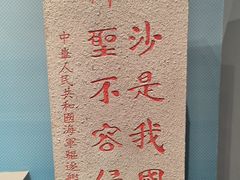 沙是我國
聖不容侵
中華人民共和國海軍